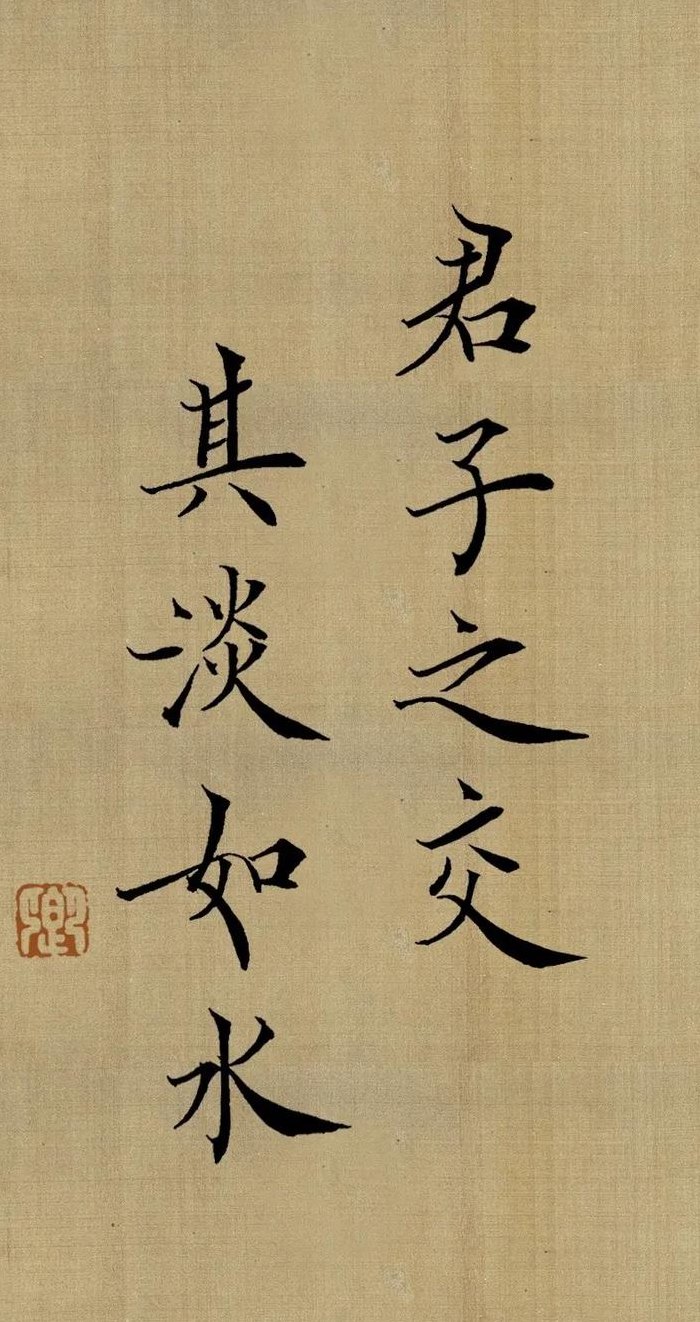 君子之交
其淡如水